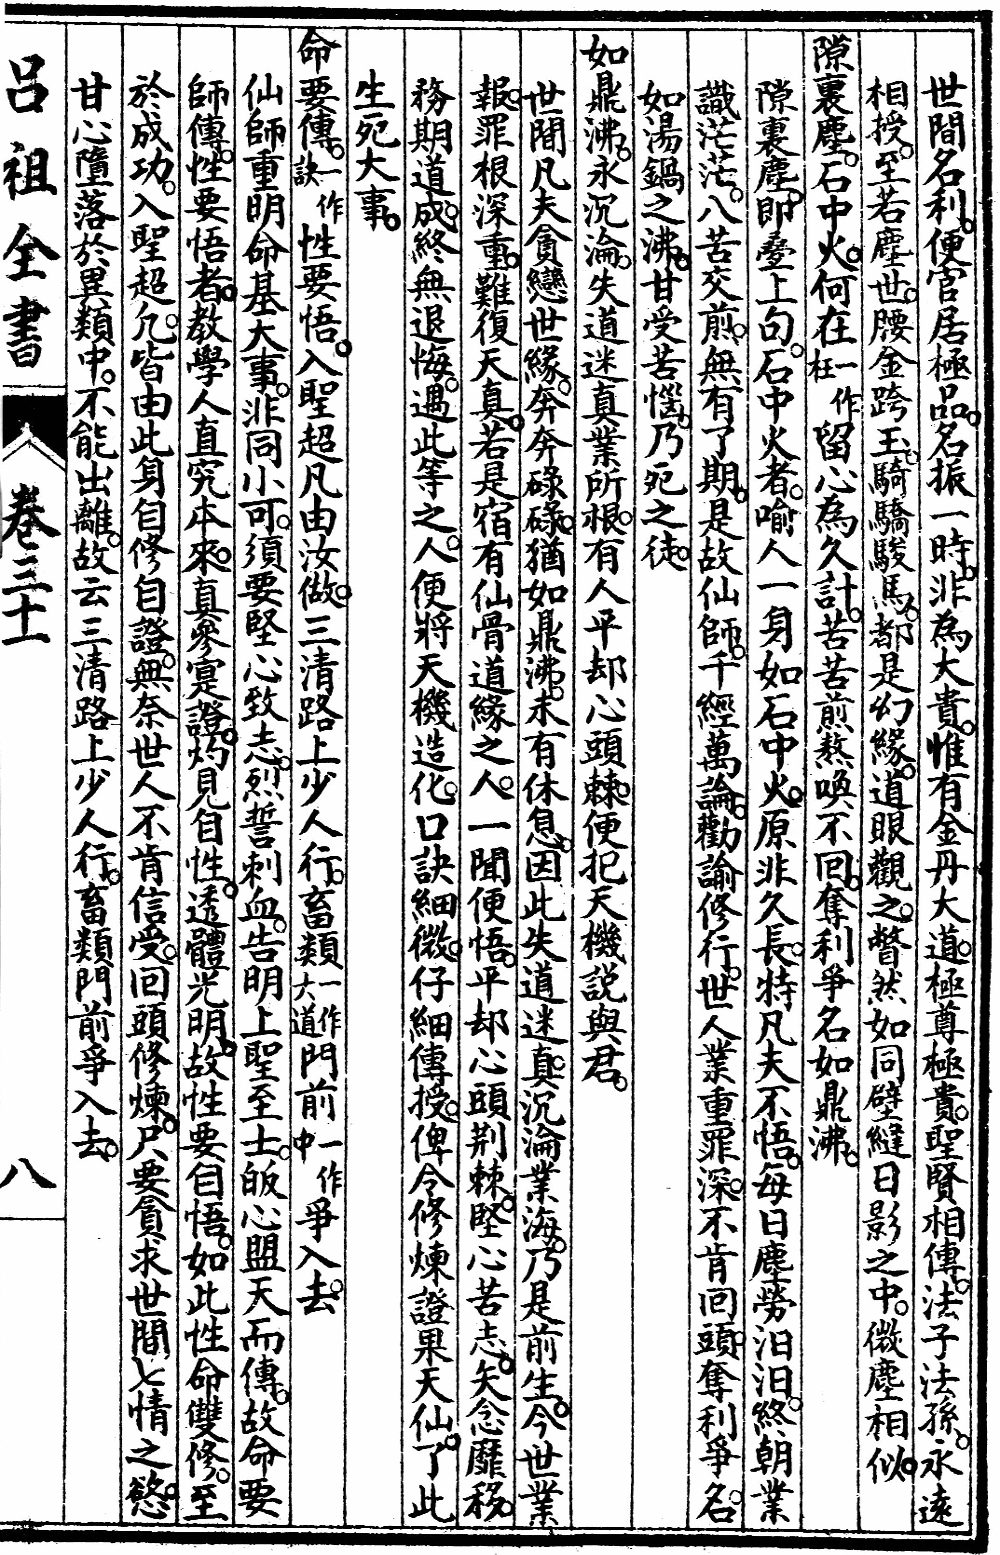 世間名利。便官居極品。名振一時。非為大貴。惟有金丹大道。極尊極貴。聖賢相傳。法子法孫。永遠
相授。至若塵世。腰金跨玉。騎驕駿馬。都是幻緣。道眼觀之。瞥然如同壁縫日影之中。微塵相似。
隙裏塵。石中火。何在一作枉留心為久計。苦苦煎熬喚不回。奪利爭名如鼎沸。
隙裏塵。即疊上句。石中火者。喻人一身如石中火。原非久長。特凡夫不悟。每日塵勞汨汨。終朝業
識茫茫。八苦交煎。無有了期。是故仙師。千經萬論。勸諭修行。世人業重罪深。不肯回頭。奪利爭名。
如湯鍋之沸。甘受苦惱。乃死之徒。
如鼎沸。永沉淪。失道迷真業所根。有人平却心頭棘。便把天機說與君。
世間凡夫。貪戀世緣。奔奔碌碌。猶如鼎沸。未有休息。因此失道迷真。沉淪業海。乃是前生今世業
報。罪根深重。難復天真。若是宿有仙骨道緣之人。一聞便悟。平却心頭荊棘。堅心苦志。矢念靡移。
務期道成。終無退悔。遇此等之人。便將天機造化。口訣細微。仔細傳授。俾令修煉證果天仙。了此
生死大事。
命要傳。一作訣性要悟。入聖超凡由汝做。三清路上少人行。畜類一作大道門前一作中爭入去。
仙師重明命基大事。非同小可。須要堅心致志。烈誓刺血。告明上聖至士。皈心盟天而傳。故命要
師傳。性要悟者。教學人直究本來。真參寔證。灼見自性。透體光明。故性要自悟。如此性命雙修。至
於成功。入聖超凢。皆由此身自修自證。無奈世人不肯信受。回頭修煉。尺要貪求世間七情之慾。
甘心墮落於異類中。不能出離。故云三清路上少人行。畜類門前爭入去。
呂祖全書
卷三十
八